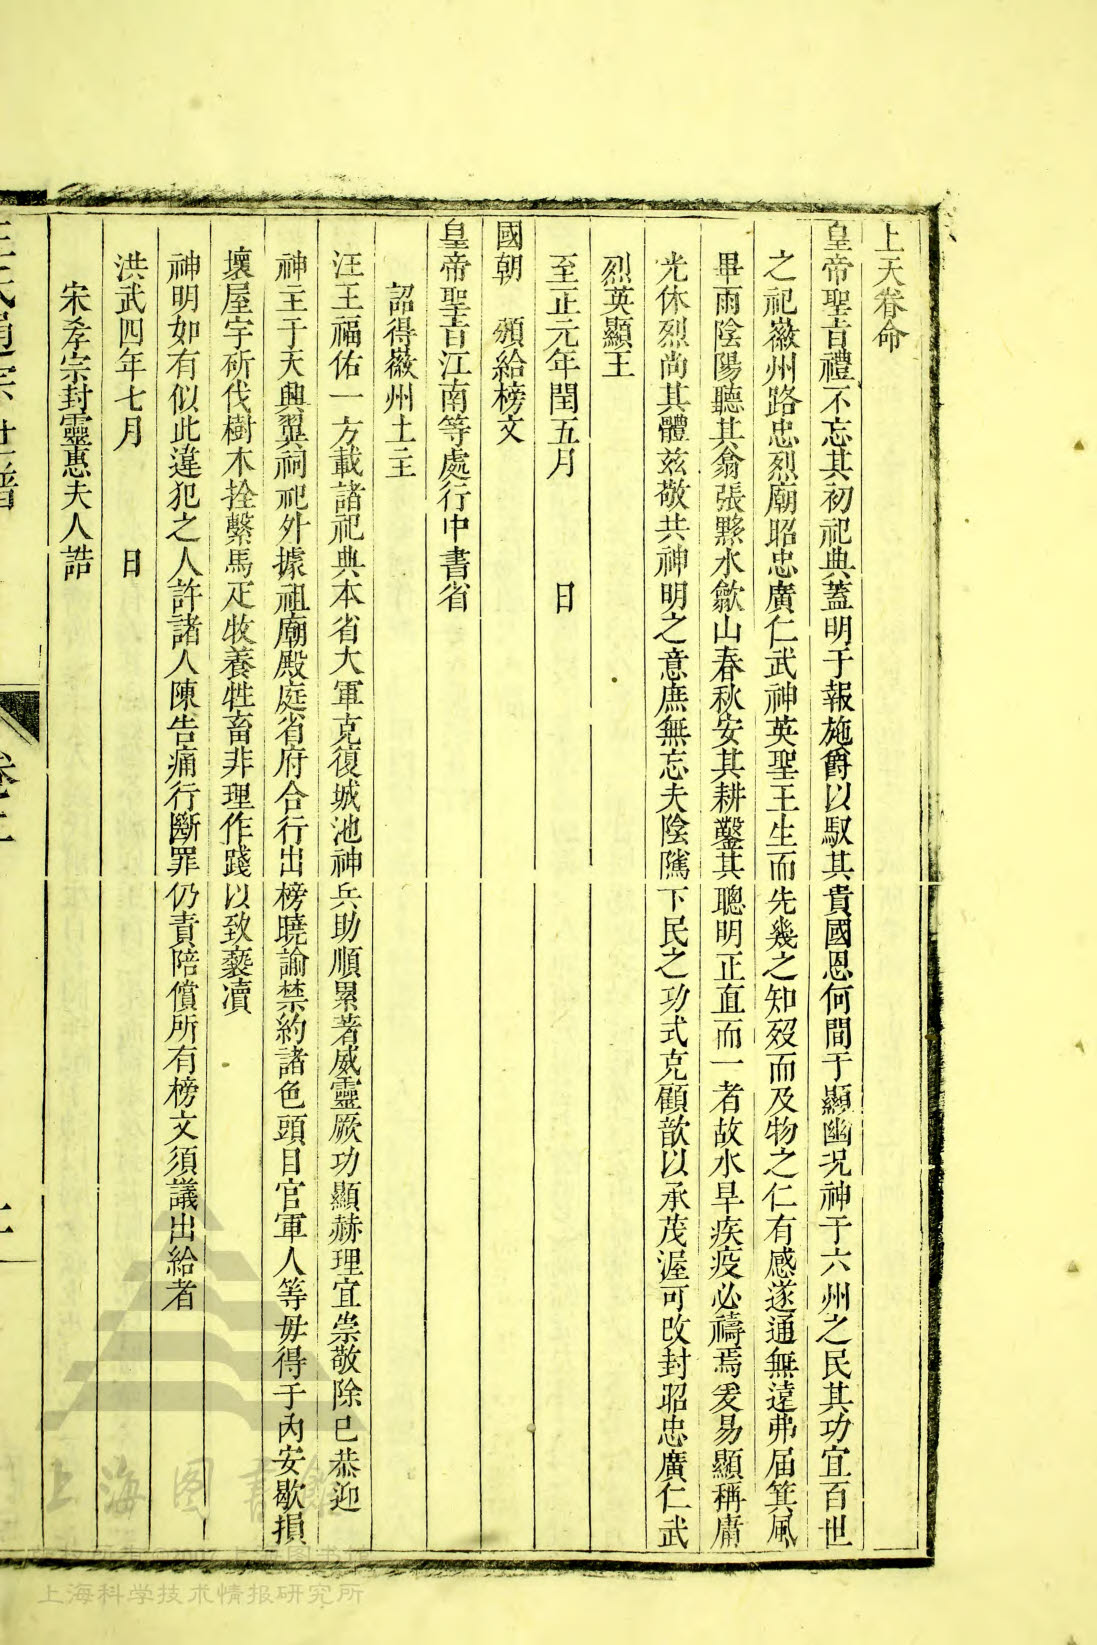 上天眷命
皇帝聖旨禮不忘其初祀典蓋明于報施爵以馭其貴國恩何間于顯幽況神于六州之民其功宜百世
之祀徽州路忠烈廟昭忠廣仁武神英聖王生而先幾之知歿而及物之仁有感遂通無遠弗届箕風
畢雨陰陽聽其翕張黟水歙山春秋安其耕鑿其聰明正直而一者故水旱疾疫必禱焉爰易顯稱庸
光休烈尚其體兹敬共神明之意庶無忘夫陰隲下民之功式克顧歆以承茂渥可改封昭忠廣仁武
烈英顯王
至正元年閏五月 日
國朝 頒給榜文
皇帝聖旨江南等處行中書省
詔得徽州土主
汪王福佑一方載諸祀典本省大軍克復城池神兵助順累著威靈厥功顯赫理宜崇敬除已恭迎
神主于天興翼祠祀外據祖廟殿庭省府合行出榜曉諭禁約諸色頭目官軍人等毋得于內安歇損
壞屋宇斫伐樹木拴繫馬疋牧養牲畜非理作踐以致䙝凟
神明如有似此違犯之人許諸人陳告痛行斷罪仍責陪償所有榜文須議出給者
洪武四年七月 日
宋孝宗封靈惠夫人誥
汪氏通宗世譜
卷
上海图書館
上海科学技术情报研究所